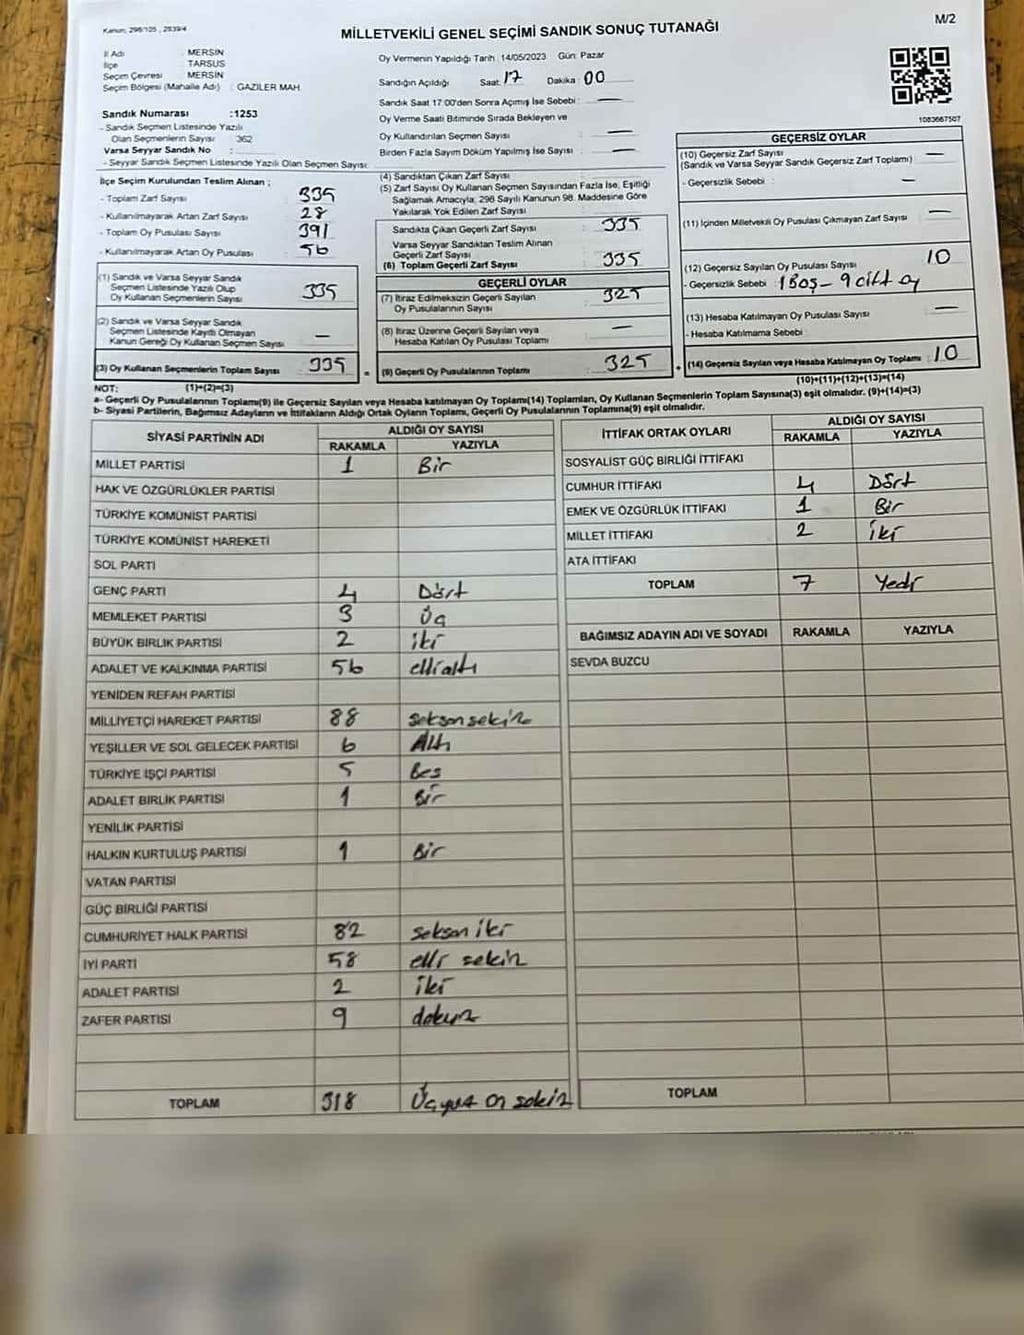 Kanun: 298/105 , 2839/4
MİLLETVEKİLİ GENEL SEÇİMİ SANDIK SONUÇ TUTANAĞI
M/2
İl Adı : MERSİN
İlçe : TARSUS
Seçim Çevresi : MERSİN
Seçim Bölgesi (Mahalle Adı) : GAZİLER MAH.
Sandık Numarası :1253
- Sandık Seçmen Listesinde Yazılı
Olan Seçmenlerin Sayısı : 362
Varsa Seyyar Sandık No :
- Seyyar Sandık Seçmen Listesinde Yazılı Olan Seçmen Sayısı:
Oy Vermenin Yapıldığı Tarih : 14/05/2023 Gün: Pazar
Sandığın Açıldığı Saat: 17 Dakika 00
Sandık Saat 17:00'den Sonra Açımış İse Sebebi : —
Oy Verme Saati Bitiminde Sırada Bekleyen ve
Oy Kullandırılan Seçmen Sayısı : —
Birden Fazla Sayım Döküm Yapılmış İse Sayısı : —
1083667507
İlçe Seçim Kurulundan Teslim Alınan ;
- Toplam Zarf Sayısı : 335
- Kullanılmayarak Artan Zarf Sayısı : 28
- Toplam Oy Pusulası Sayısı : 391
- Kullanılmayarak Artan Oy Pusulası : 56
(1) Sandık ve Varsa Seyyar Sandık
Seçmen Listesinde Yazılı Olup
Oy Kullanan Seçmenlerin Sayısı : 335
(2) Sandık ve Varsa Seyyar Sandık
Seçmen Listesinde Kayıtlı Olmayan
Kanun Gereği Oy Kullanan Seçmen Sayısı : —
(3) Oy Kullanan Seçmenlerin Toplam Sayısı : 335
(4) Sandıktan Çıkan Zarf Sayısı :
(5) Zarf Sayısı Oy Kullanan Seçmen Sayısından Fazla İse, Eşitliği
Sağlamak Amacıyla; 298 Sayılı Kanunun 98. Maddesine Göre
Yakılarak Yok Edilen Zarf Sayısı :
Sandıkta Çıkan Geçerli Zarf Sayısı : 335
Varsa Seyyar Sandıktan Teslim Alınan
Geçerli Zarf Sayısı :
(6) Toplam Geçerli Zarf Sayısı : 335
GEÇERLİ OYLAR
(7) İtiraz Edilmeksizin Geçerli Sayılan
Oy Pusulalarının Sayısı : 325
(8) İtiraz Üzerine Geçerli Sayılan veya
Hesaba Katılan Oy Pusulası Toplamı : —
= (9) Geçerli Oy Pusulalarının Toplamı : 325
GEÇERSİZ OYLAR
(10) Geçersiz Zarf Sayısı : —
(Sandık ve Varsa Seyyar Sandık Geçersiz Zarf Toplamı)
- Geçersizlik Sebebi : —
(11) İçinden Milletvekili Oy Pusulası Çıkmayan Zarf Sayısı : —
(12) Geçersiz Sayılan Oy Pusulası Sayısı : 10
- Geçersizlik Sebebi : 1 Boş - 9 çift oy
(13) Hesaba Katılmayan Oy Pusulası Sayısı : —
- Hesaba Katılmama Sebebi :
+ (14) Geçersiz Sayılan veya Hesaba Katılmayan Oy Toplamı : 10
NOT: (1)+(2)=(3)
(10)+(11)+(12)+(13)=(14)
a- Geçerli Oy Pusulasının Toplamı(9) ile Geçersiz Sayılan veya Hesaba katılmayan Oy Toplamı(14) Toplamları, Oy Kullanan Seçmenlerin Toplam Sayısına(3) eşit olmalıdır. (9)+(14)=(3)
b- Siyasi Partilerin, Bağımsız Adayların ve İttifakların Aldığı Ortak Oyların Toplamı, Geçerli Oy Pusulalarının Toplamına(9) eşit olmalıdır.
SİYASİ PARTİNİN ADI ALDIĞI OY SAYISI
RAKAMLA YAZIYLA
MİLLET PARTİSİ 1 Bir
HAK VE ÖZGÜRLÜKLER PARTİSİ
TÜRKİYE KOMÜNİST PARTİSİ
TÜRKİYE KOMÜNİST HAREKETİ
SOL PARTİ
GENÇ PARTİ 4 Dört
MEMLEKET PARTİSİ 3 Üç
BÜYÜK BİRLİK PARTİSİ 2 iki
ADALET VE KALKINMA PARTİSİ 56 elli altı
YENİDEN REFAH PARTİSİ
MİLLİYETÇİ HAREKET PARTİSİ 88 seksen sekiz
YEŞİLLER VE SOL GELECEK PARTİSİ 6 Altı
TÜRKİYE İŞÇİ PARTİSİ 5 Beş
ADALET BİRLİK PARTİSİ 1 Bir
YENİLİK PARTİSİ
HALKIN KURTULUŞ PARTİSİ 1 Bir
VATAN PARTİSİ
GÜÇ BİRLİĞİ PARTİSİ
CUMHURİYET HALK PARTİSİ 82 seksen iki
İYİ PARTİ 58 elli sekiz
ADALET PARTİSİ 2 iki
ZAFER PARTİSİ 9 dokuz
TOPLAM 318 Üçyüz on sekiz
İTTİFAK ORTAK OYLARI ALDIĞI OY SAYISI
RAKAMLA YAZIYLA
SOSYALİST GÜÇ BİRLİĞİ İTTİFAKI
CUMHUR İTTİFAKI 4 Dört
EMEK VE ÖZGÜRLÜK İTTİFAKI 1 Bir
MİLLET İTTİFAKI 2 iki
ATA İTTİFAKI
TOPLAM 7 Yedi
BAĞIMSIZ ADAYIN ADI VE SOYADI RAKAMLA YAZIYLA
SEVDA BUZCU
TOPLAM